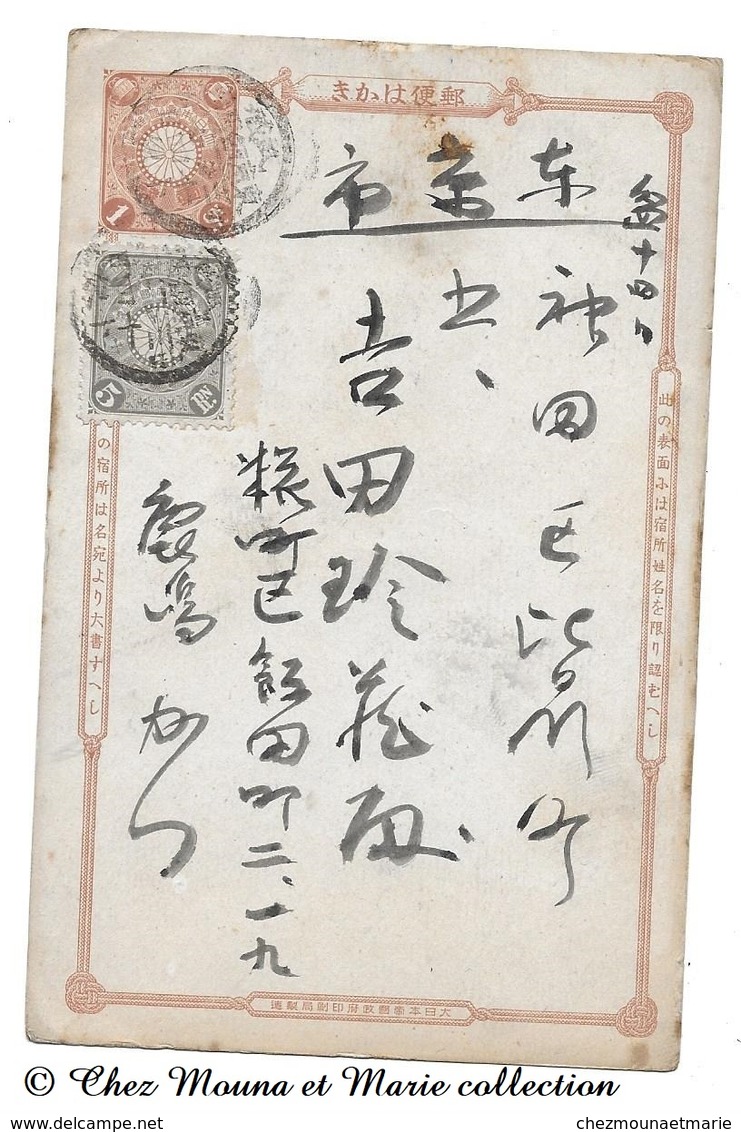 郵便はかき
東京市
神田区
五、
吉田珍蔵殿
麹町区飯田町二、一九
鹿嶋かつ
此の表面には宿所姓名を限り認むへし
の宿所は名宛より大書すへし
大日本帝国政府印刷局製造
1 Sn
5 RN
© Chez Mouna et Marie collection
chezmounaetmarie.com